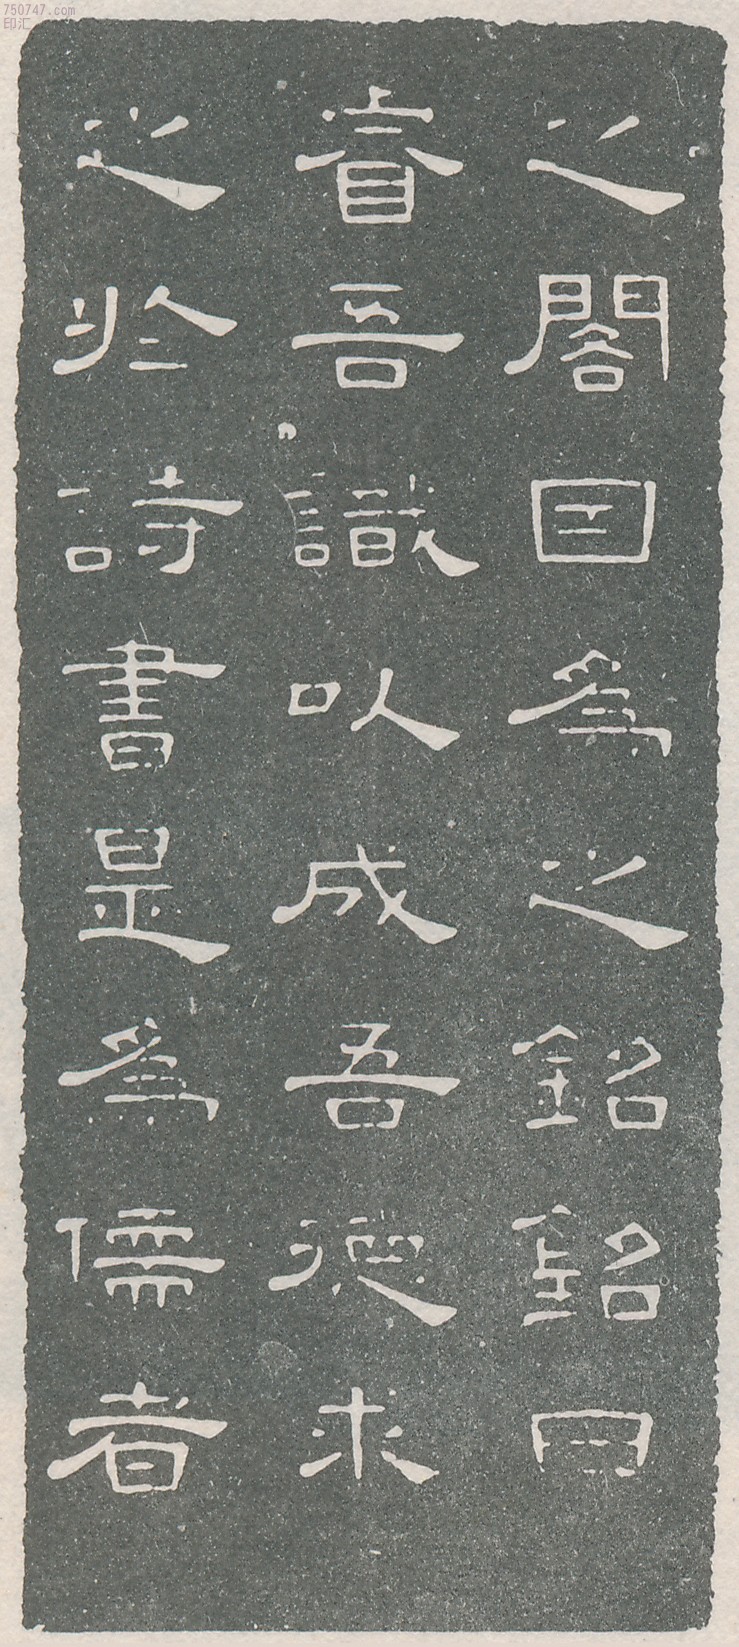 之閣因為之銘銘曰
睿吾識以成吾德求
之於詩書是為儒者
750747.com
印汇